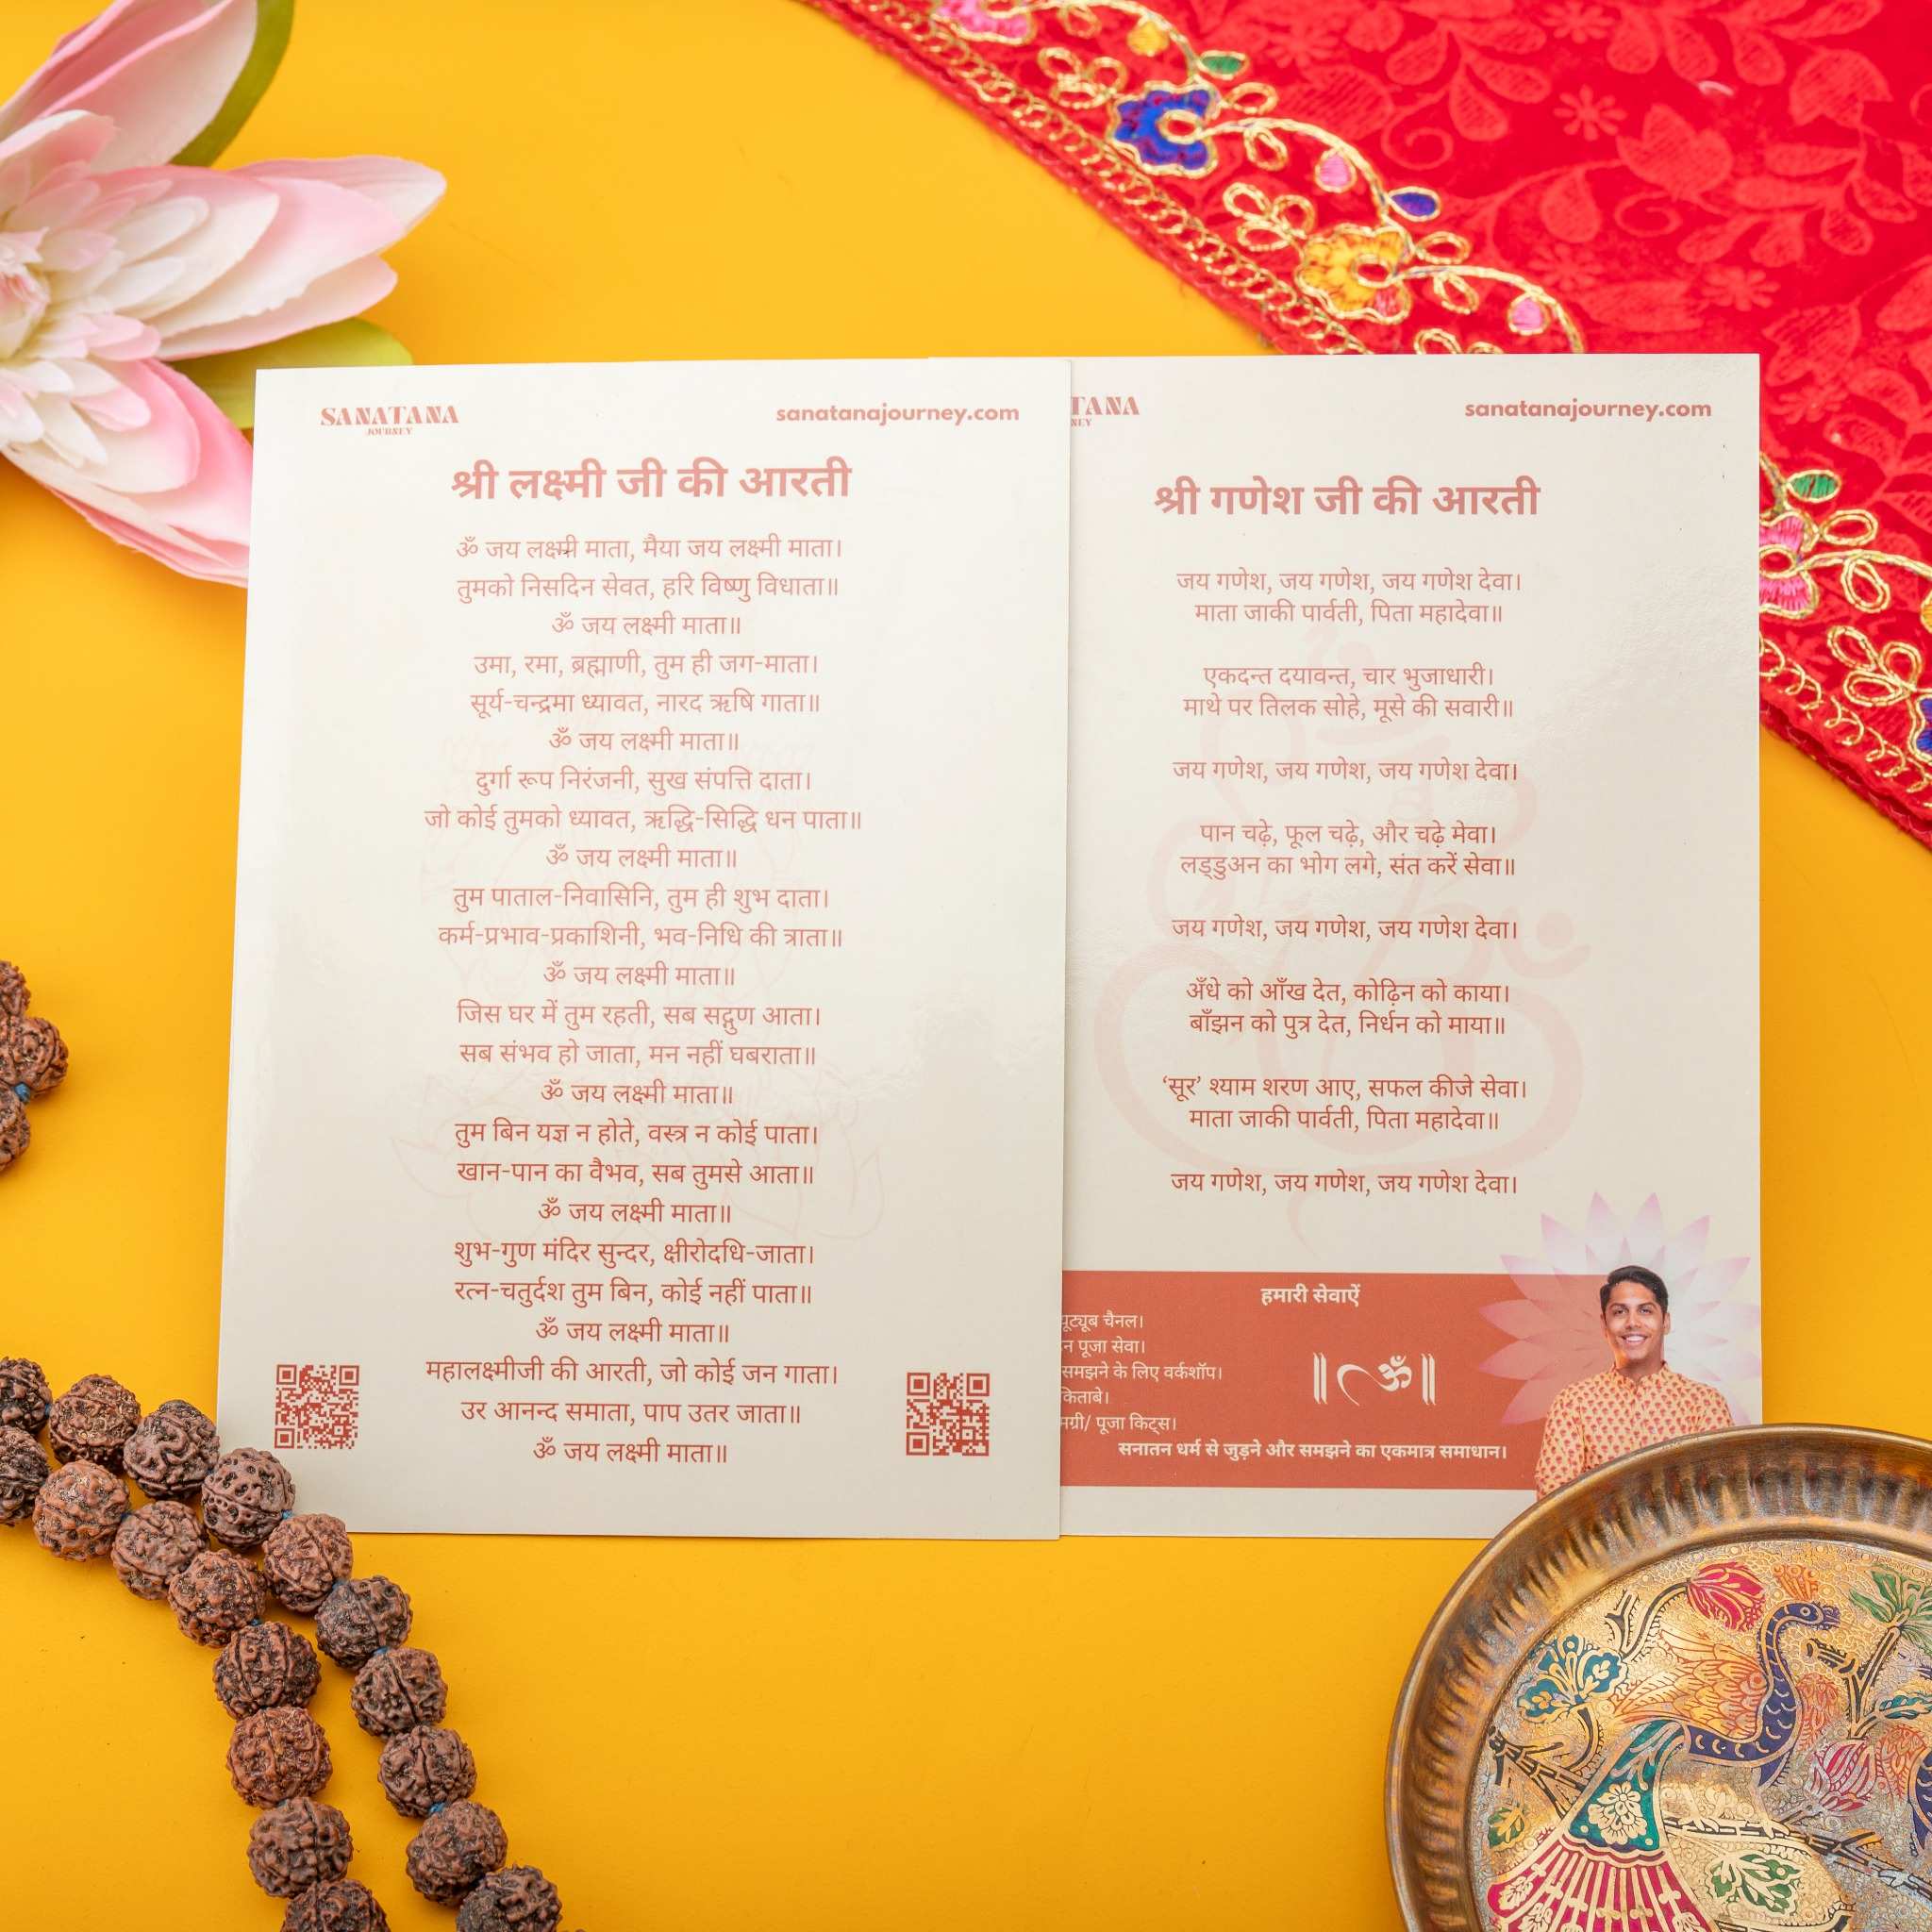 SANATANA
JOURNEY
sanatanajourney.com
श्री लक्ष्मी जी की आरती
ॐ जय लक्ष्मी माता, मैया जय लक्ष्मी माता।
तुमको निसदिन सेवत, हरि विष्णु विधाता॥
ॐ जय लक्ष्मी माता॥
उमा, रमा, ब्रह्माणी, तुम ही जग-माता।
सूर्य-चन्द्रमा ध्यावत, नारद ऋषि गाता॥
ॐ जय लक्ष्मी माता॥
दुर्गा रूप निरंजनी, सुख संपत्ति दाता।
जो कोई तुमको ध्यावत, ऋद्धि-सिद्धि धन पाता॥
ॐ जय लक्ष्मी माता॥
तुम पाताल-निवासिनि, तुम ही शुभ दाता।
कर्म-प्रभाव-प्रकाशिनी, भव-निधि की त्राता॥
ॐ जय लक्ष्मी माता॥
जिस घर में तुम रहती, सब सद्गुण आता।
सब संभव हो जाता, मन नहीं घबराता॥
ॐ जय लक्ष्मी माता॥
तुम बिन यज्ञ न होते, वस्त्र न कोई पाता।
खान-पान का वैभव, सब तुमसे आता॥
ॐ जय लक्ष्मी माता॥
शुभ-गुण मंदिर सुन्दर, क्षीरोदधि-जाता।
रत्न-चतुर्दश तुम बिन, कोई नहीं पाता॥
ॐ जय लक्ष्मी माता॥
महालक्ष्मीजी की आरती, जो कोई जन गाता।
उर आनन्द समाता, पाप उतर जाता॥
ॐ जय लक्ष्मी माता॥
TANA
NEY
sanatanajourney.com
श्री गणेश जी की आरती
जय गणेश, जय गणेश, जय गणेश देवा।
माता जाकी पार्वती, पिता महादेवा॥
एकदन्त दयावन्त, चार भुजाधारी।
माथे पर तिलक सोहे, मूसे की सवारी॥
जय गणेश, जय गणेश, जय गणेश देवा।
पान चढ़े, फूल चढ़े, और चढ़े मेवा।
लड्डुअन का भोग लगे, संत करें सेवा॥
जय गणेश, जय गणेश, जय गणेश देवा।
अँधे को आँख देत, कोढ़िन को काया।
बाँझन को पुत्र देत, निर्धन को माया॥
‘सूर’ श्याम शरण आए, सफल कीजे सेवा।
माता जाकी पार्वती, पिता महादेवा॥
जय गणेश, जय गणेश, जय गणेश देवा।
हमारी सेवाऐं
यूट्यूब चैनल।
न पूजा सेवा।
समझने के लिए वर्कशॉप।
किताबे।
मग्री/ पूजा किट्स।
॥ॐ॥
सनातन धर्म से जुड़ने और समझने का एकमात्र समाधान।